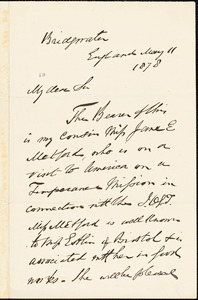 Bridgwater
England May 11
1878
My dear Sir
The Bearer of this
is my cousin Miss Jane E
Metford, who is on a
visit to America on a
Temperance Mission in
connection with the I.O.G.T.
Miss Metford is well known
to Miss Estlin of Bristol & is
associated with her in
works. She will be pleased